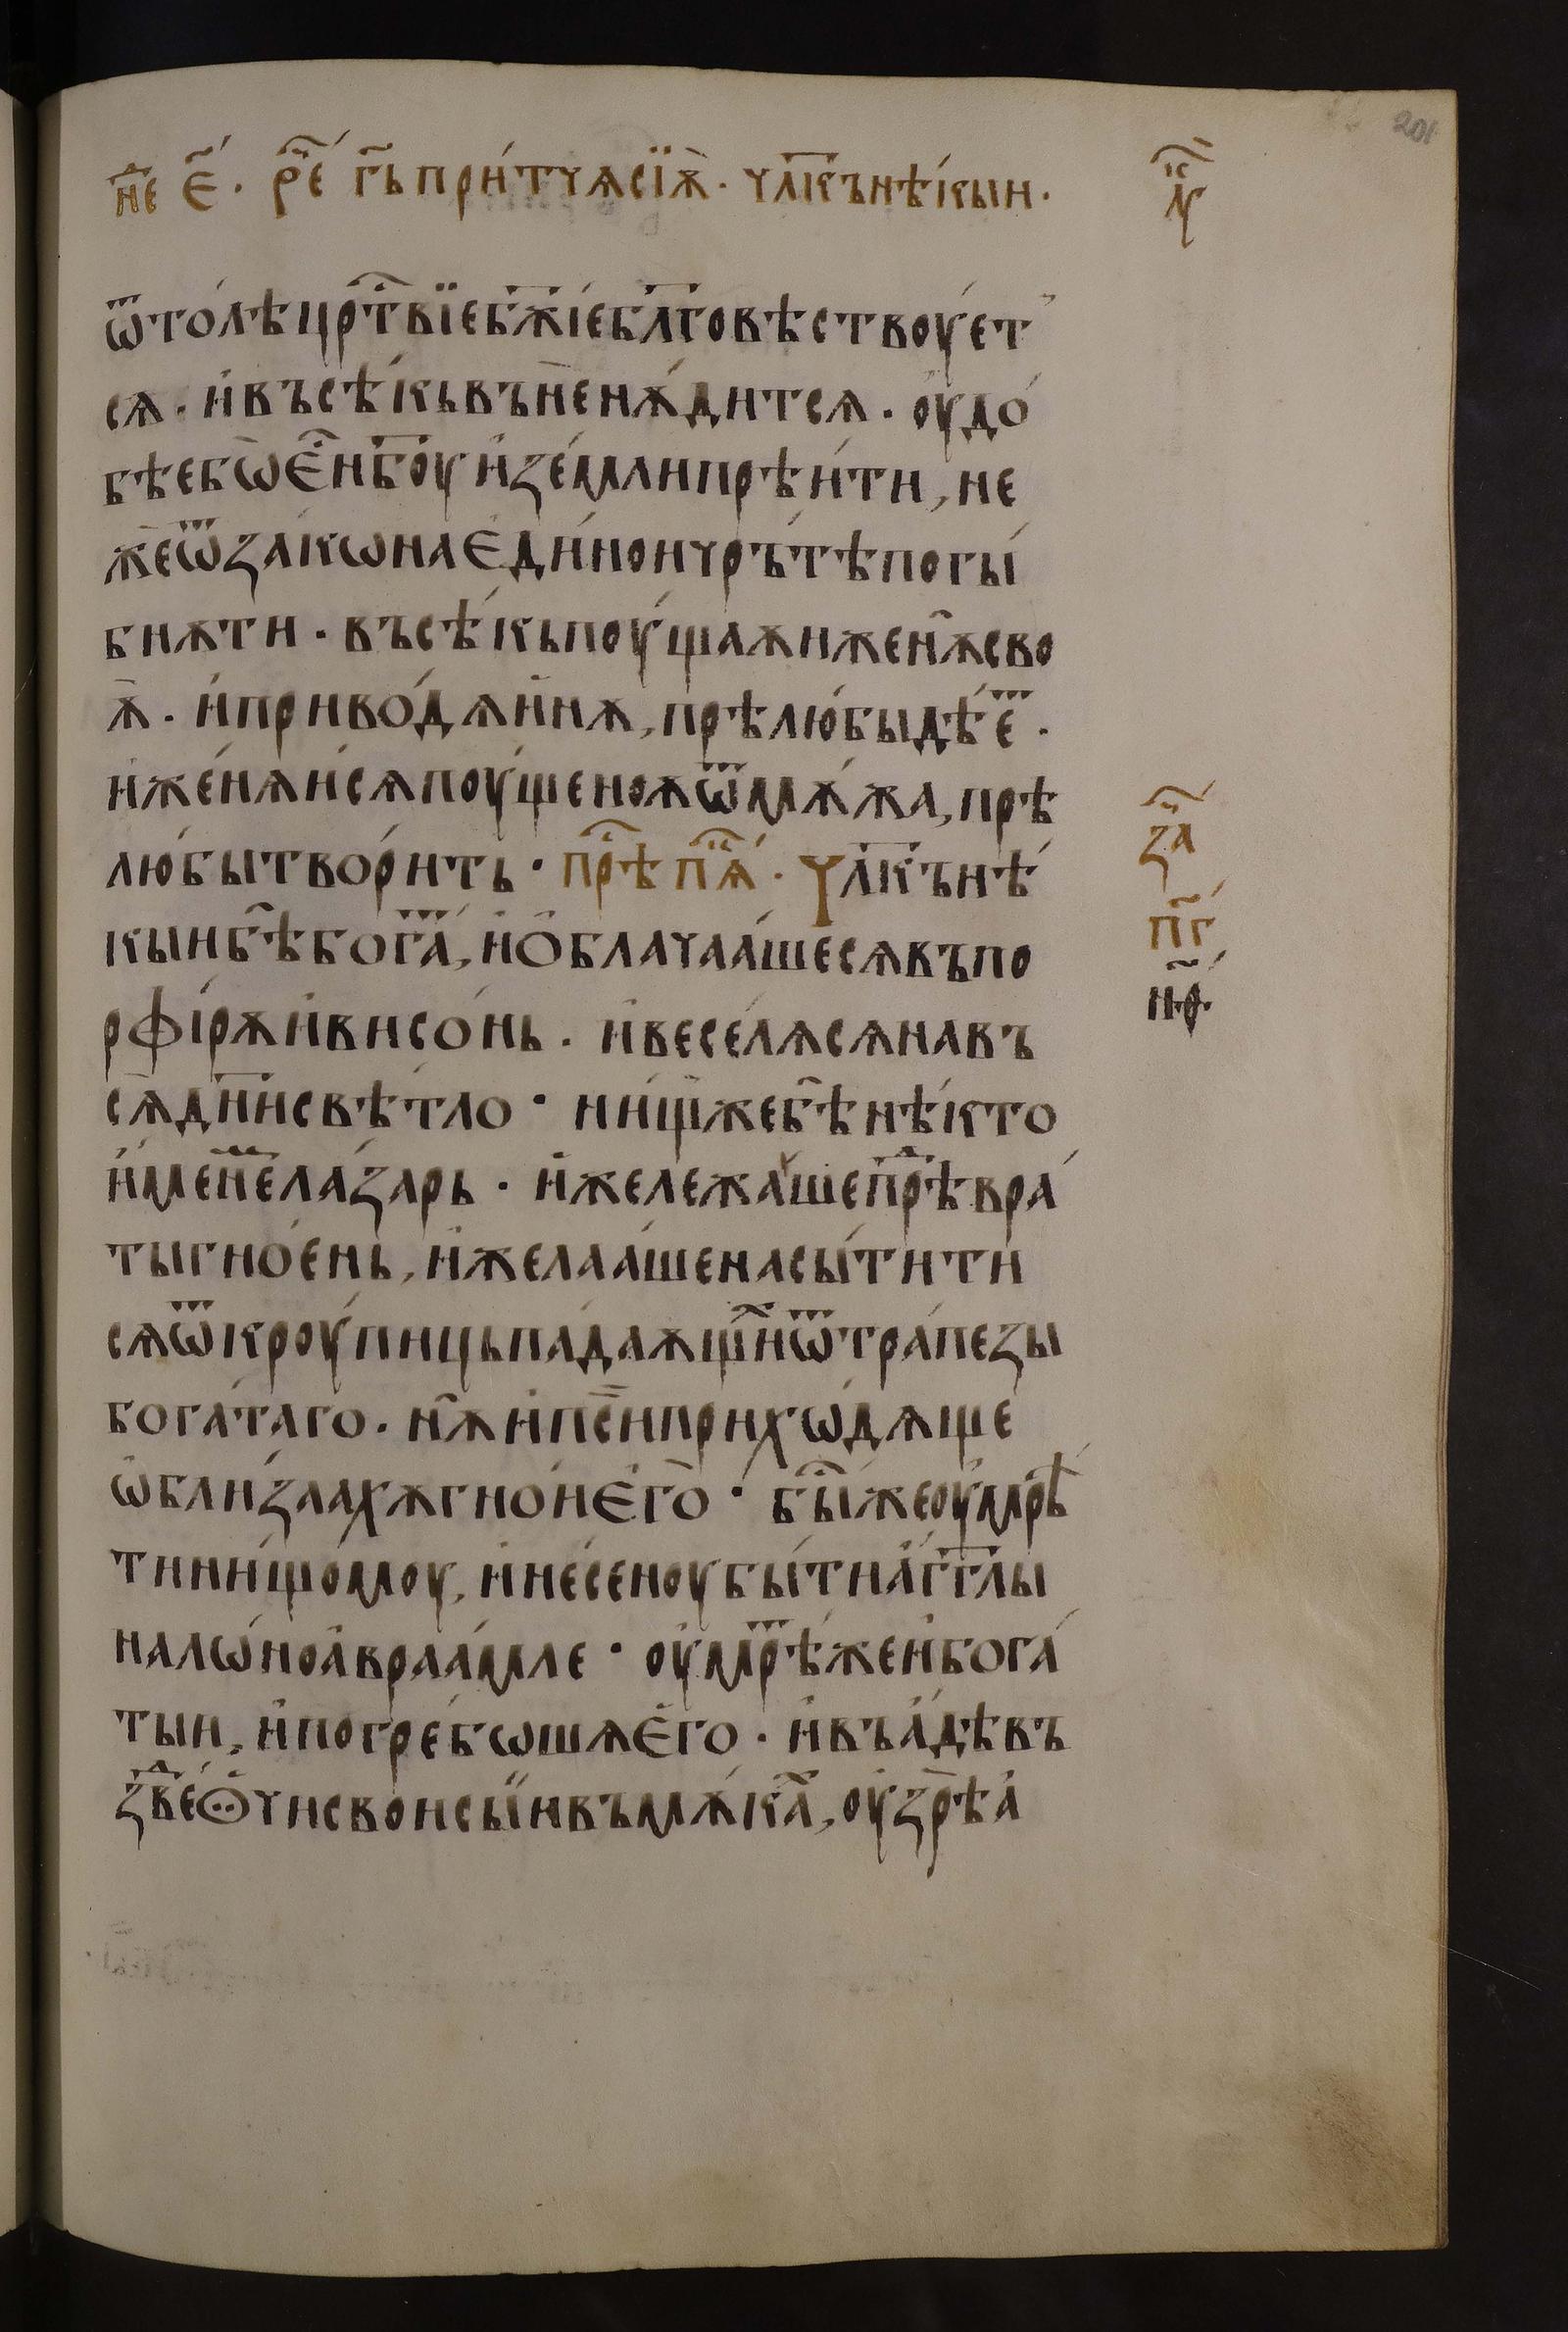 201
н҃е е҃ · рⷱ҇е г҃ь при́тчѫ сїѫ̀ · чл҃къ нѣ́кыи ·
к҃
ѿто́лѣ црⷭ҇твїе бж҃іе бл҃говѣствоу́ет
сѧ · и҆ въсѣ́кь въ не нѫ́дитсѧ · оудо́
бѣе бѡ є҆ⷭ҇ нб҃оу и҆ земли прѣи́ти, не
же ѿ зако́на є҆ди́нои чръ́тѣ погы́
бнѫти · въсѣ́кь поу́щаѫи женѫ̀ сво
ѫ̀ · и҆ приво́дѧ и҆нѫ, прѣлю́бы дѣ́е҆ⷮ ·
и҆же́нѧи сѧ поу́щеноѫ ѿ мѫ́жа, прѣ
лю́бы твори́ть · прⷣѣ пⷭ҇ѧ́ · Чл҃къ нѣ́
за҃
п҃г
н҃ф
кыи бѣ̀ бога́ⷮ, и҆ ѻ҆блачаа́ше сѧ въ по
рфі́рѫ и҆ виссо́нь · и҆ весе́лѧ сѧ на въ
сѧ̀ дн҃и свѣ́тло · ни́щⷤже бѣ̀ нѣ́кто
и҆́менеⷨ ла́зарь · и҆же лежа́ше прⷣѣ вра́
ты гно́ень, и҆ желаа́ше насы́тити
сѧ ѿ кроу́пиць па́даѫщиⷯ ѿ трапе́зы
бога́таго · нѫ̀ и҆ пси́ приход́ѧще
ѡ҆бли́заахѫ гно́и є҆го̀ · быⷭ҇ же оу҆мрѣ́
ти ни́щомоу, и҆ несе́ноу бы́ти а҆́гг҃лы
на лѡ́но а҆враа́мле · оу҆́мрⷮѣ же и҆ бога́
тыи, и҆ погребо́шѧ є҆го · и҆ въ а́дѣ въ
зве́дь Ѻчи свои́ сы́и въ мѫ́каⷯ, оу҆зрѣ̀ а҆